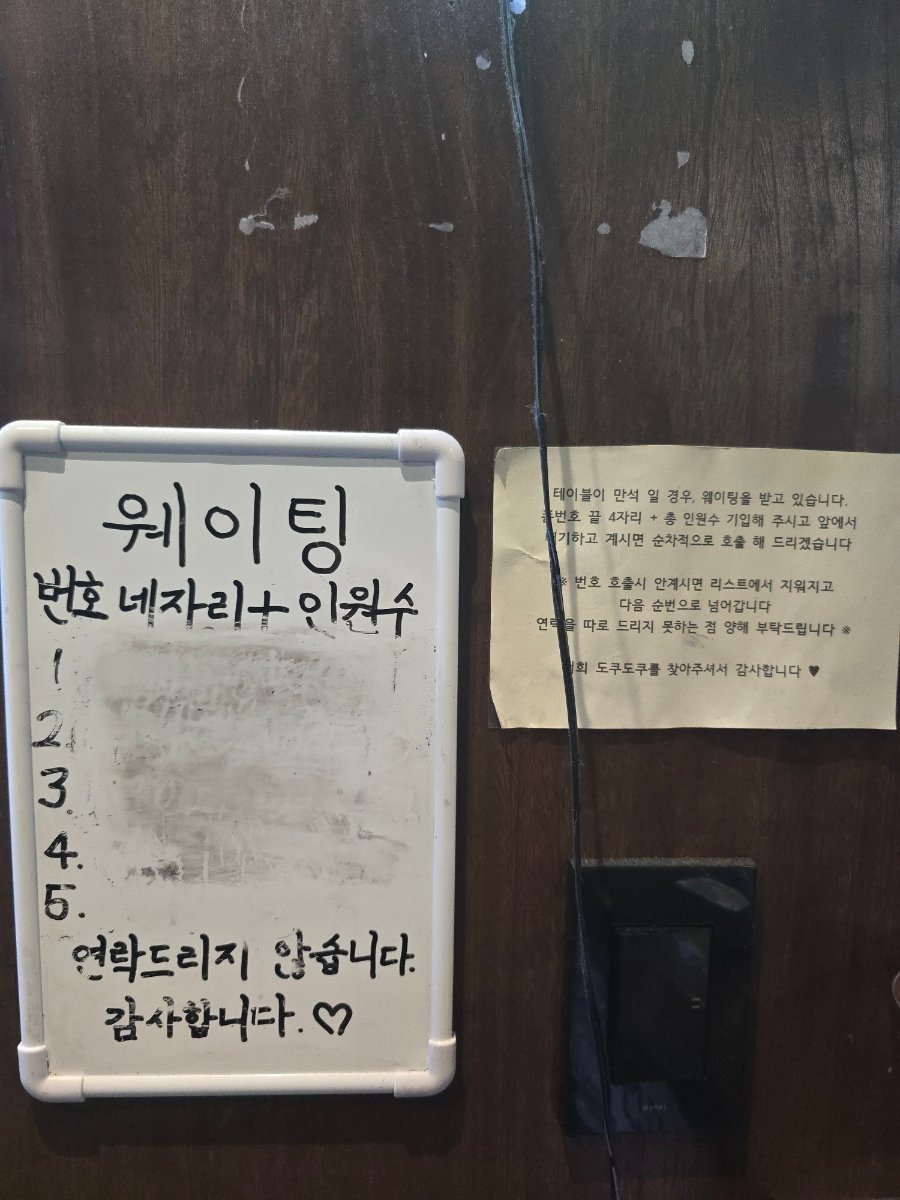 웨이팅
번호 네자리+인원수
1
2.
3.
4.
5.
연락드리지 않습니다.
감사합니다.♡
테이블이 만석 일 경우, 웨이팅을 받고 있습니다.
폰번호 끝 4자리 + 총 인원수 기입해 주시고 앞에서
대기하고 계시면 순차적으로 호출 해 드리겠습니다
※ 번호 호출시 안계시면 리스트에서 지워지고
다음 순번으로 넘어갑니다
연락을 따로 드리지 못하는 점 양해 부탁드립니다 ※
저희 도쿠도쿠를 찾아주셔서 감사합니다 ♥